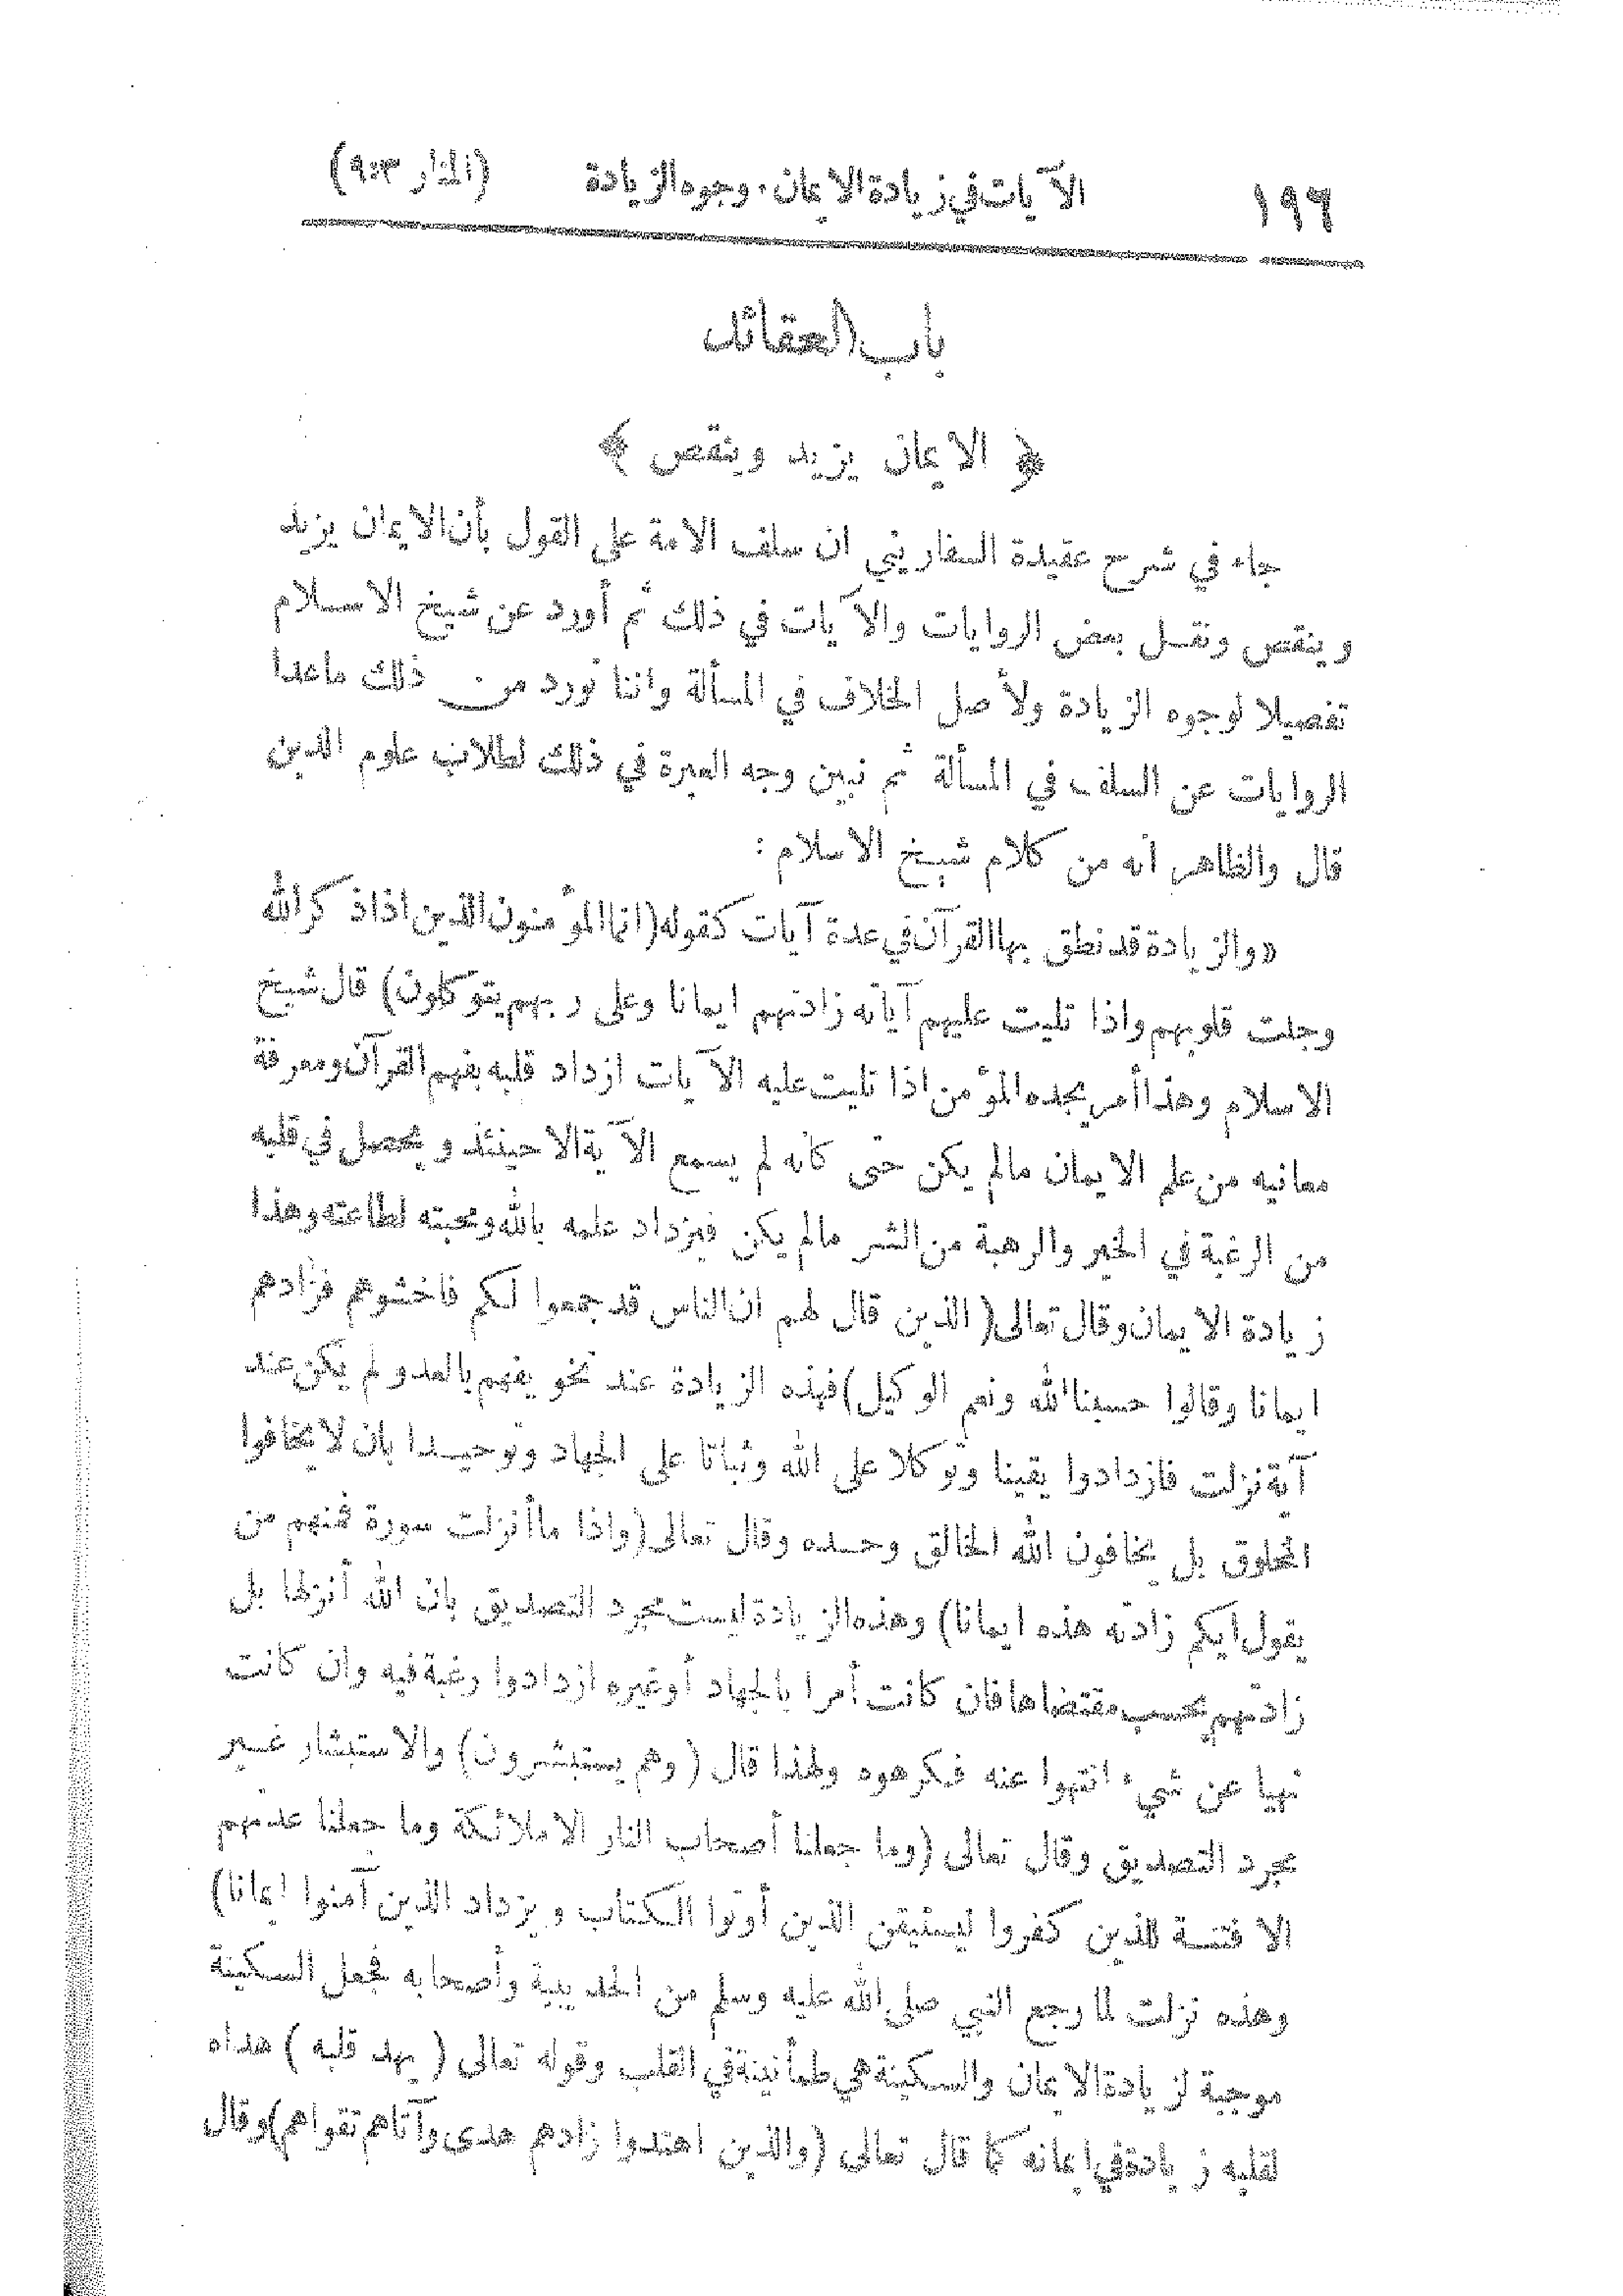 ١٩٦ الآيات في زيادة الايمان . وجوه الزيادة (المنار ٣:٩)
باب العقائد
﴿ الايمان يزيد وينقص ﴾
جاء في شرح عقيدة السفاريني ان سلف الامة على القول بأن الايمان يزيد
وينقص ونقل بعض الروايات والآيات في ذلك ثم أورد عن شيخ الاسلام
تفصيلا لوجوه الزيادة ولأصل الخلاف في المسألة واننا نورد من ذلك ماعدا
الروايات عن السلف في المسألة ثم نبين وجه العبرة في ذلك لطلاب علوم الدين
قال والظاهر انه من كلام شيخ الاسلام :
«والزيادة قد نطق بها القرآن في عدة آيات كقوله (انما المؤمنون الذين اذا ذكر الله
وجلت قلوبهم واذا تليت عليهم آياته زادتهم ايمانا وعلى ربهم يتوكلون) قال شيخ
الاسلام وهذا أمر يجده المؤمن اذا تليت عليه الآيات ازداد قلبه بفهم القرآن ومعرفة
معانيه من علم الايمان مالم يكن حتى كأنه لم يسمع الآية الا حينئذ ويحصل في قلبه
من الرغبة في الخير والرهبة من الشر مالم يكن فيزداد علمه بالله ومحبته لطاعته وهذا
زيادة الايمان وقال تعالى (الذين قال لهم ان الناس قد جمعوا لكم فاخشوهم فزادهم
ايمانا وقالوا حسبنا الله ونعم الوكيل) فهذه الزيادة عند تخويفهم بالعدو لم يكن عند
آية نزلت فازدادوا يقينا وتوكلا على الله وثباتا على الجهاد وتوحيدا بان لا يخافوا
المخلوق بل يخافون الله الخالق وحده وقال تعالى (واذا ما أنزلت سورة فمنهم من
يقول ايكم زادته هذه ايمانا) وهذه الزيادة ليست مجرد التصديق بان الله أنزلها بل
زادتهم بحسب مقتضاها فان كانت أمرا بالجهاد أو غيره ازدادوا رغبة فيه وان كانت
نهيا عن شيء انتهوا عنه فكرهوه ولهذا قال (وهم يستبشرون) والاستبشار غير
مجرد التصديق وقال تعالى (وما جعلنا أصحاب النار الا ملائكة وما جعلنا عدتهم
الا فتنة للذين كفروا ليستيقن الذين أوتوا الكتاب ويزداد الذين آمنوا ايمانا)
وهذه نزلت لما رجع النبي صلى الله عليه وسلم من الحديبية وأصحابه فجعل السكينة
موجبة لزيادة الايمان والسكينة هي طمأنينة في القلب وقوله تعالى ( يهد قلبه ) هداه
لقلبه زيادة في ايمانه كما قال تعالى (والذين اهتدوا زادهم هدى وآتاهم تقواهم) وقال